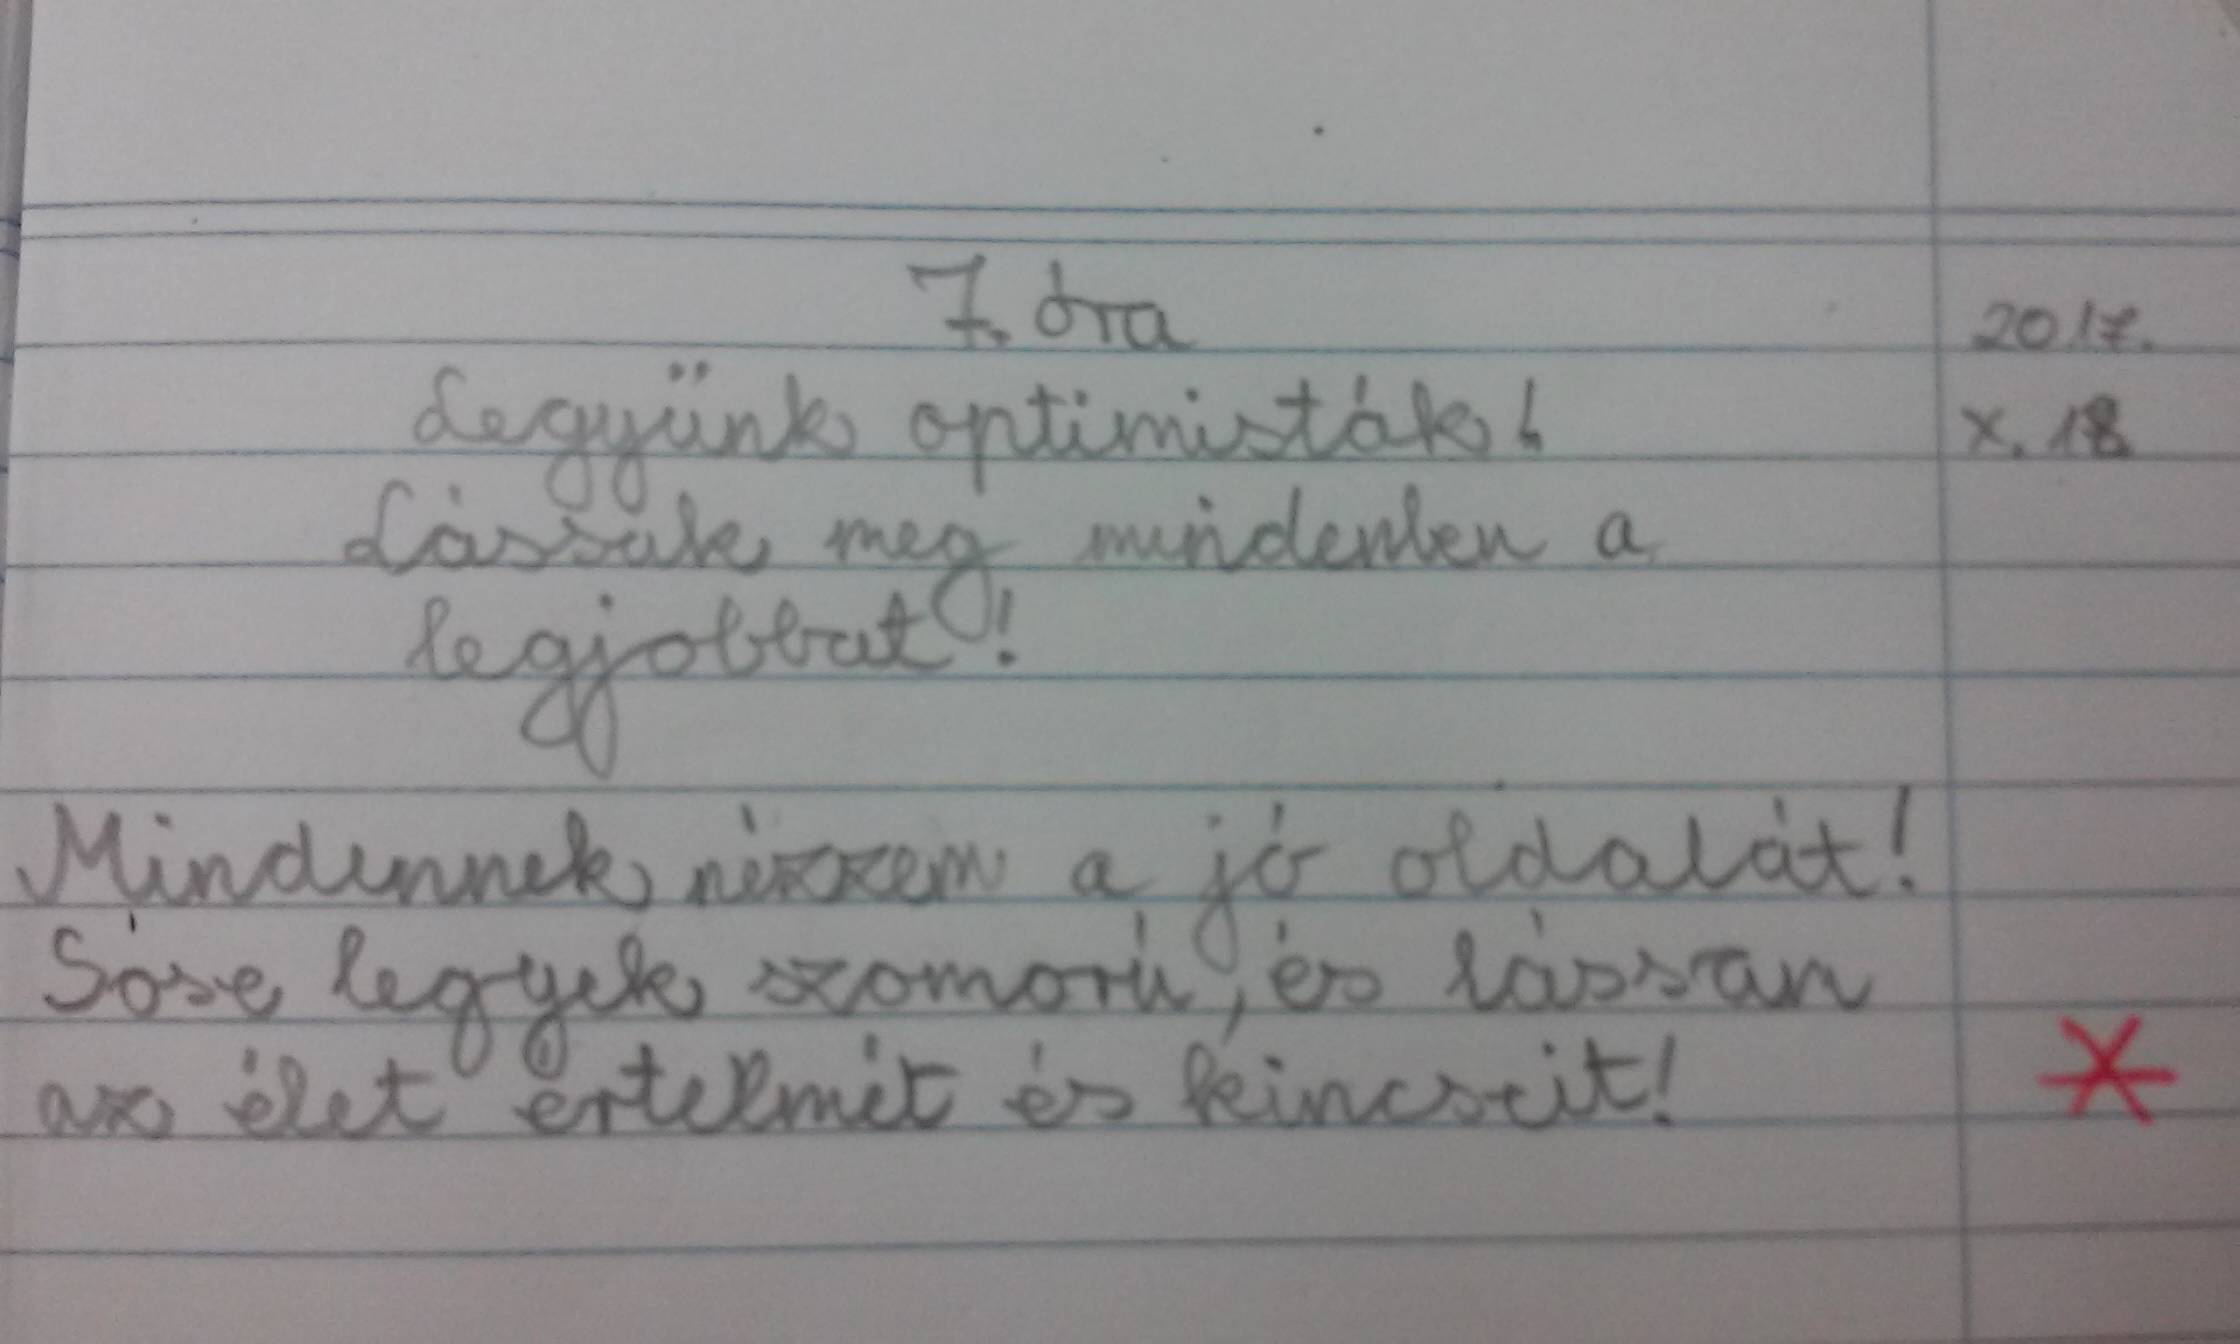 7. óra
2017.
Legyünk optimisták!
X. 18
Lássuk meg mindenben a
legjobbat!
Mindennek nézzem a jó oldalát!
Sóse legyek szomorú, és lássam
az élet értelmét és kincseit!